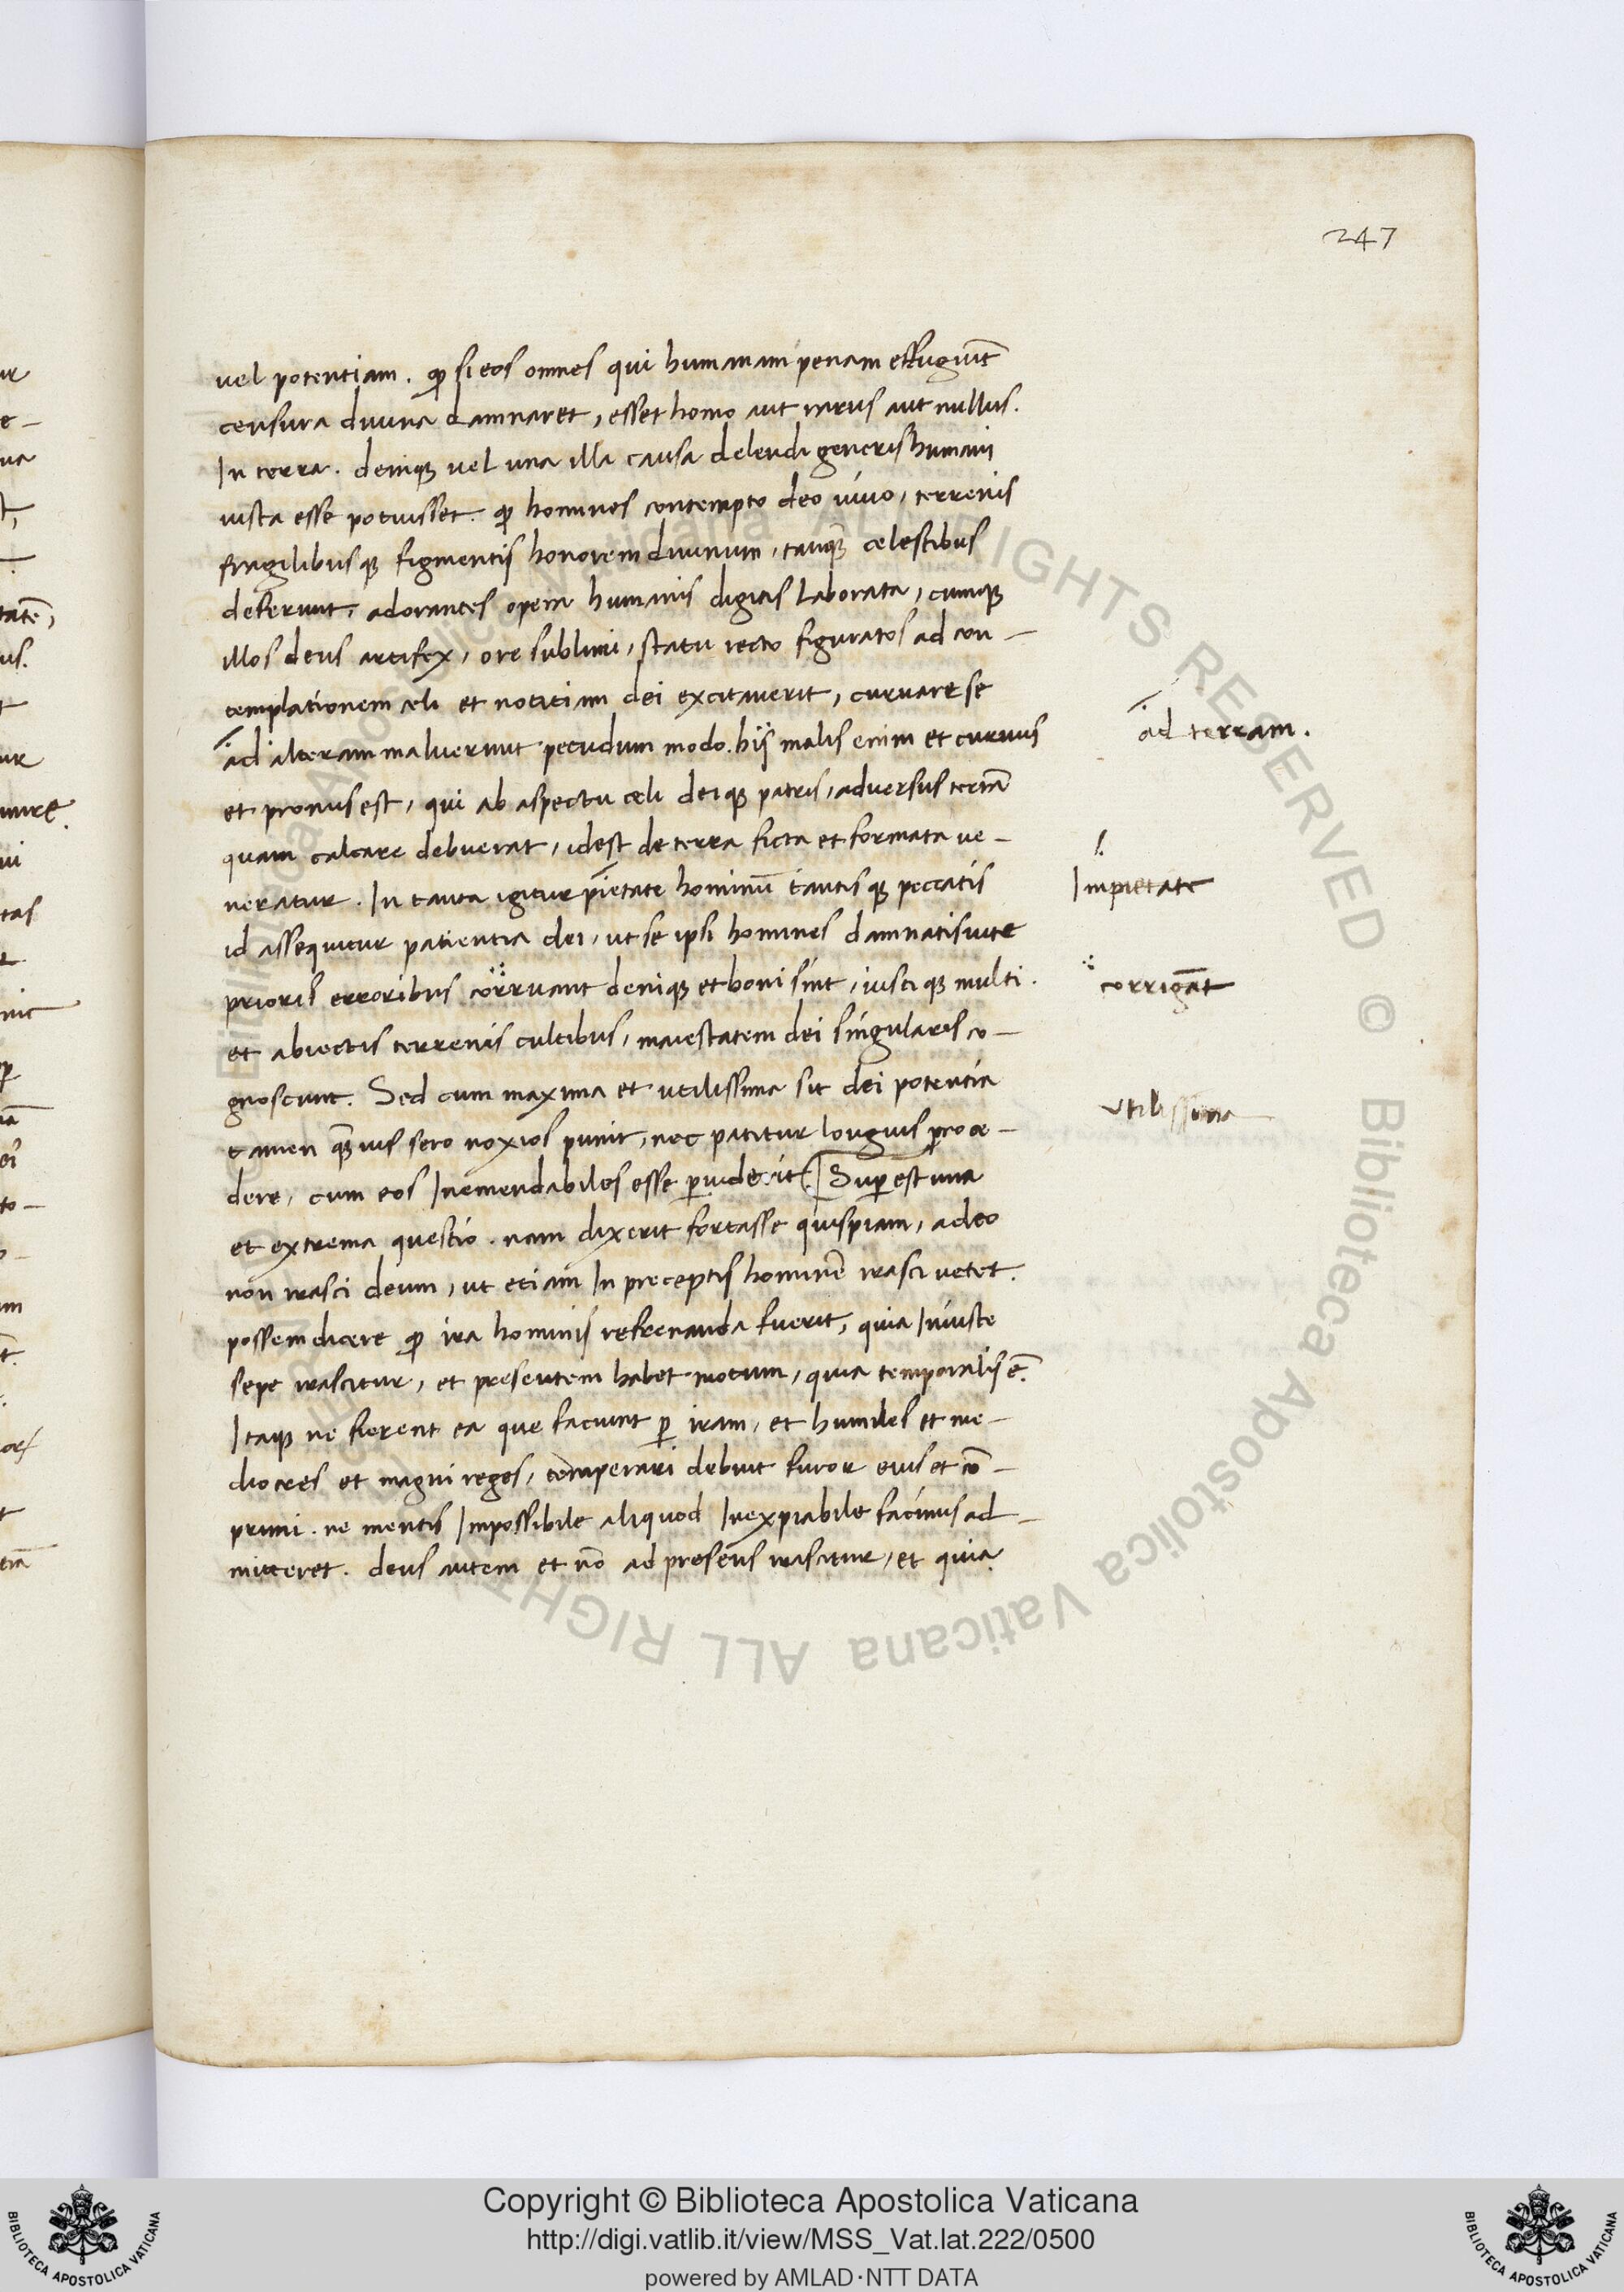 247
uel potentiam. ꝙ si eos omnes qui humanam penam effugiūt
censura diuina damnaret, esset homo aut rarus aut nullus.
In terra. deniqꝫ uel una illa causa delendi generis humani
iusta esse potuisset. ꝙ homines contempto deo uiuo, terrenis
fragilibusqꝫ figmentis honorem diuinum, tanqꝫ celestibus
deferunt, adorantes opera humanis digitis laborata, cumqꝫ
illos deus artifex, ore sublimi, statu recto figuratos ad con-
templationem celi et notitiam dei excitauerit, curuare se
ad alteram maluerunt pecudum modo. hiis malis enim et curuus
ad terram.
et pronus est, qui ab aspectu celi deiqꝫ patris, aduersus terrā
quam calcare debuerat, idest de terra ficta et formata ue-
neratur. In tanta igitur pietate hominū tantisqꝫ peccatis
Impietate
id assequitur patientia dei, ut se ipsi homines damnatis uite
prioris erroribus corruant deniqꝫ et boni sint, iustiqꝫ multi.
corrigāt
et abiectis terrenis cultibus, maiestatem dei singularis co-
gnoscunt. Sed cum maxima et utilissima sit dei potentia
utilissima
tamen qꝫuis sero noxios punit, nec patitur longius proce-
dere, cum eos Inemendabiles esse ꝑuiderit. Suꝑest una
et extrema questio. nam dixerit fortasse quispiam, adeo
non irasci deum, ut etiam In preceptis hominē irasci uetet.
possem dicere ꝙ ira hominis refrenanda fuerit, quia Iniuste
sepe irascitur, et presentem habet motum, quia temporalis ē.
Itaqꝫ ne fierent ea que faciunt ꝑ iram, et humiles et me-
diocres et magni reges, temperari debuit furor eius et cō-
primi. ne mentis Impossibile aliquod Inexpiabile facinus ad-
mitteret. deus autem et nō ad presens irascitur, et quia
Copyright © Biblioteca Apostolica Vaticana
http://digi.vatlib.it/view/MSS_Vat.lat.222/0500
powered by AMLAD·NTT DATA
BIBLIOTECA APOSTOLICA VATICANA
BIBLIOTECA APOSTOLICA VATICANA